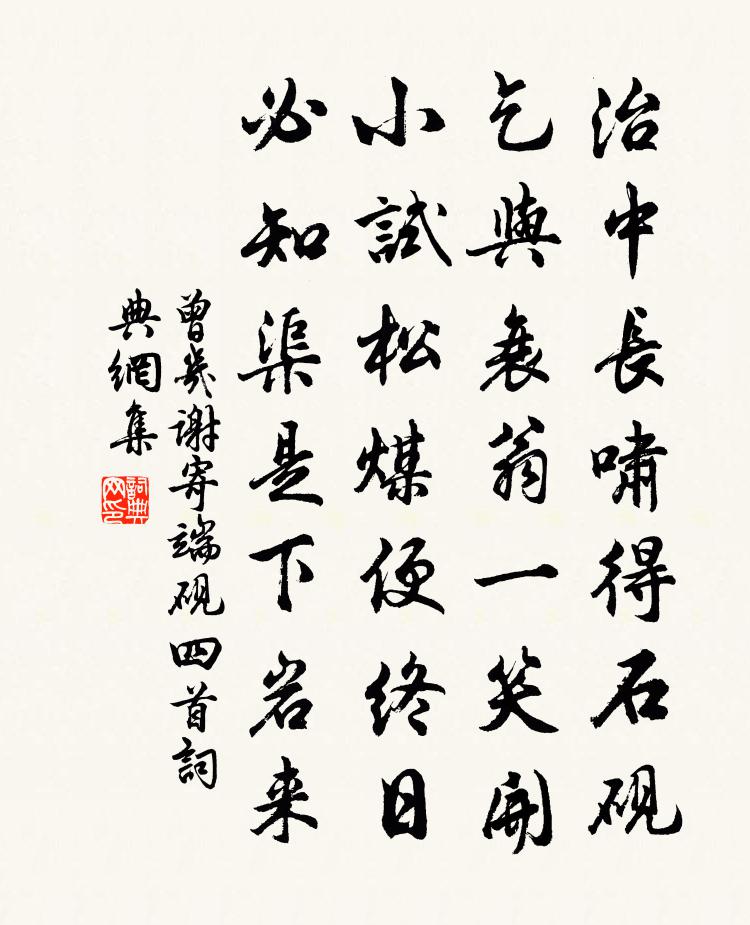 治中長嘯得石硯
乞與衰翁一笑開
小試松煤便終日
必知渠是下岩来
曾幾謝寄端硯四首詞
典網集
詞典
网印